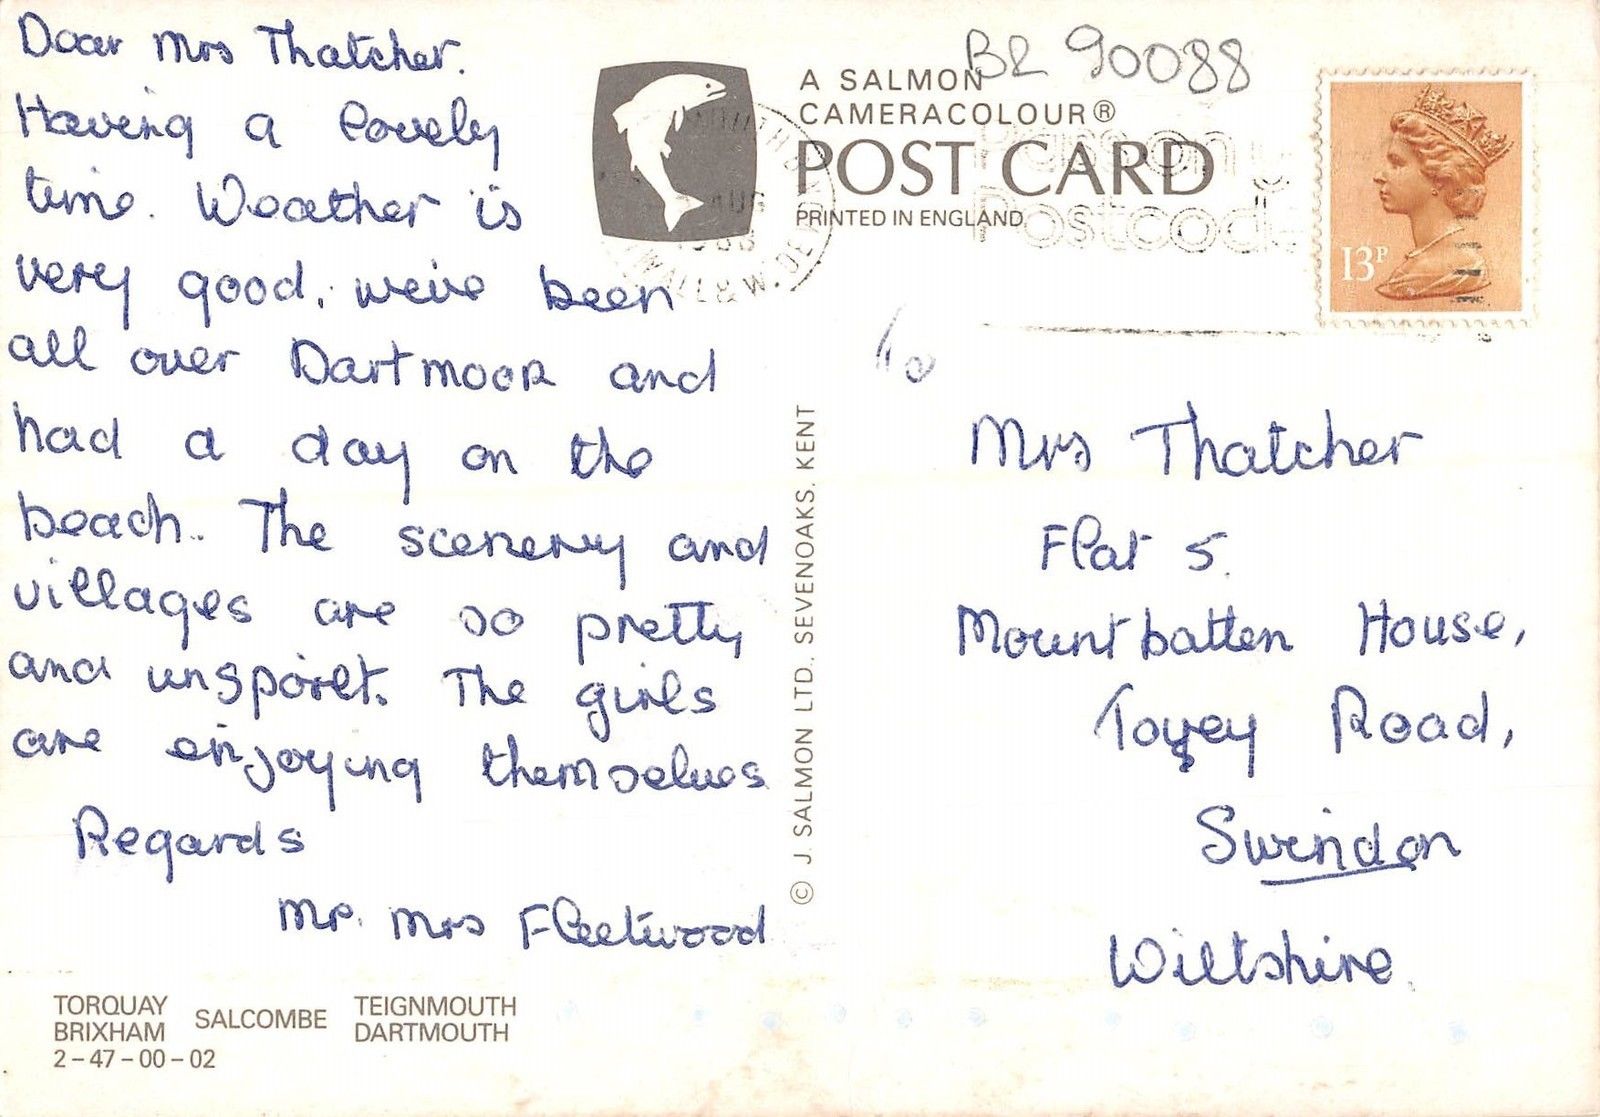 Dear Mrs Thatcher.
Having a lovely
time. Weather is
very good, we've been
all over Dartmoor and
had a day on the
beach. The scenery and
villages are so pretty
and unspoilt. The girls
are enjoying themselves
Regards
Mr. Mrs Fleetwood
TORQUAY SALCOMBE TEIGNMOUTH
BRIXHAM DARTMOUTH
2-47-00-02
BR 90088
A SALMON
CAMERACOLOUR®
POST CARD
PRINTED IN ENGLAND
Pass on
Postcode
AUG
WALL & W. DEV
© J. SALMON LTD. SEVENOAKS. KENT
13P
To
Mrs Thatcher
Flat 5.
Mountbatten House,
Tovey Road,
Swindon
Wiltshire.